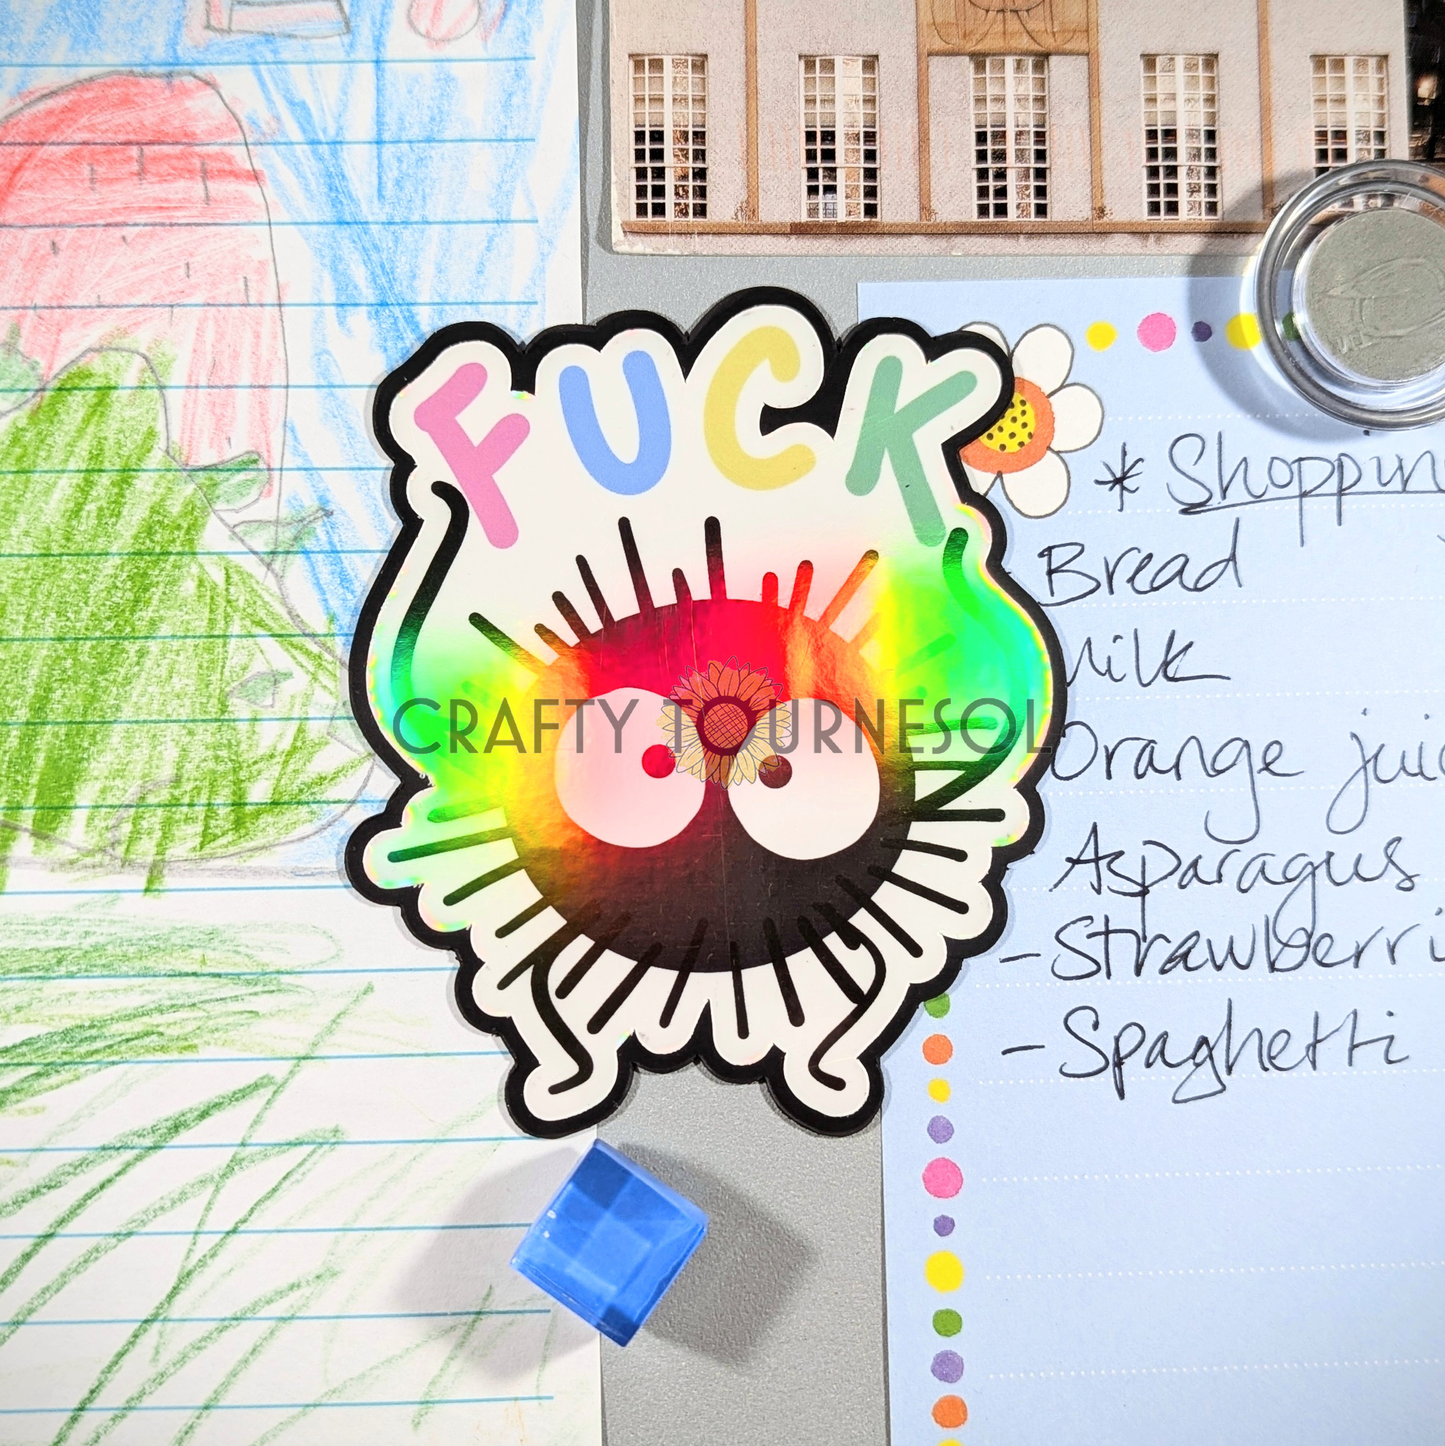 FUCK
CRAFTY TOURNESOL
* Shoppin
Bread
Milk
Orange juic
Asparagus
- Strawberri
- Spaghetti